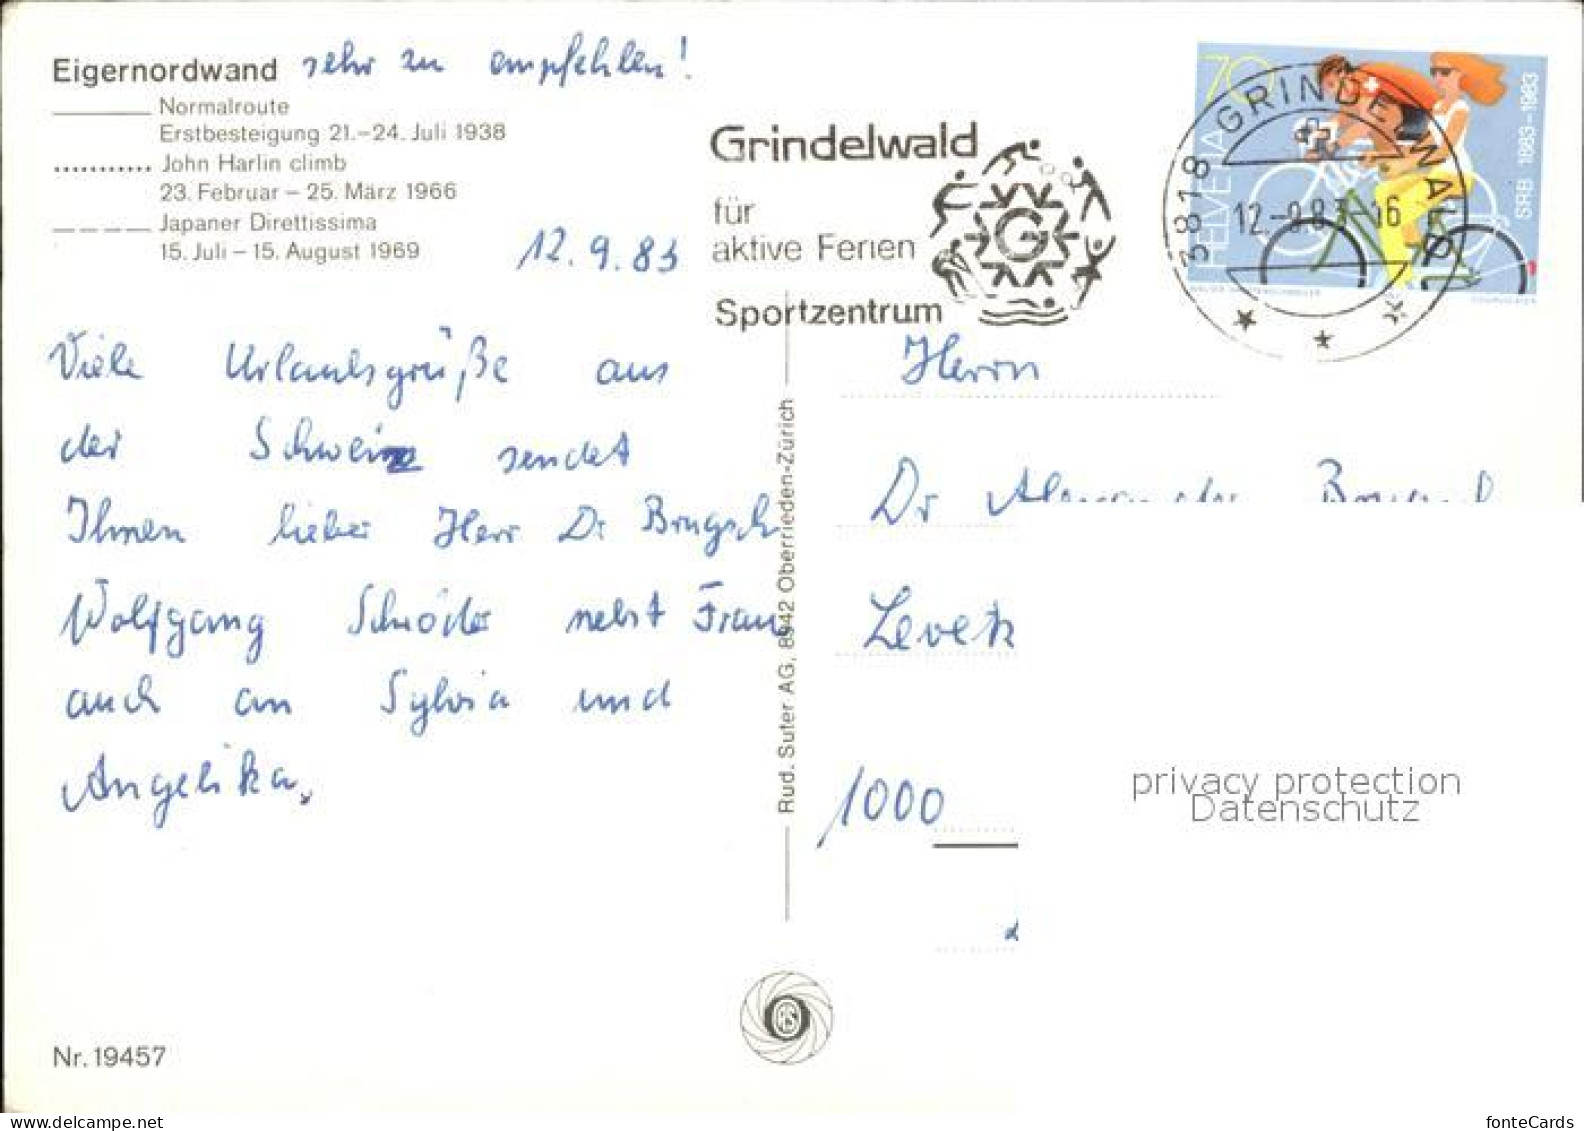 Eigernordwand sehr zu empfehlen!
Normalroute
Erstbesteigung 21.–24. Juli 1938
John Harlin climb
23. Februar – 25. März 1966
Japaner Direttissima
15. Juli – 15. August 1969
12.9.83
Viele Urlaubsgrüße aus
der Schweiz sendet
Ihnen lieber Herr Dr Brugsch
Wolfgang Schröder nebst Frau
auch an Sylvia und
Angelika.
Nr. 19457
Rud. Suter AG, 8942 Oberrieden-Zürich
Grindelwald
für
aktive Ferien
Sportzentrum
G
3818 GRINDELWALD
12.-9.83-16
70
HELVETIA
SRB 1883–1983
COURVOISIER
Herrn
Dr Alexander
Levetz
1000
privacy protection
Datenschutz
fonteCards